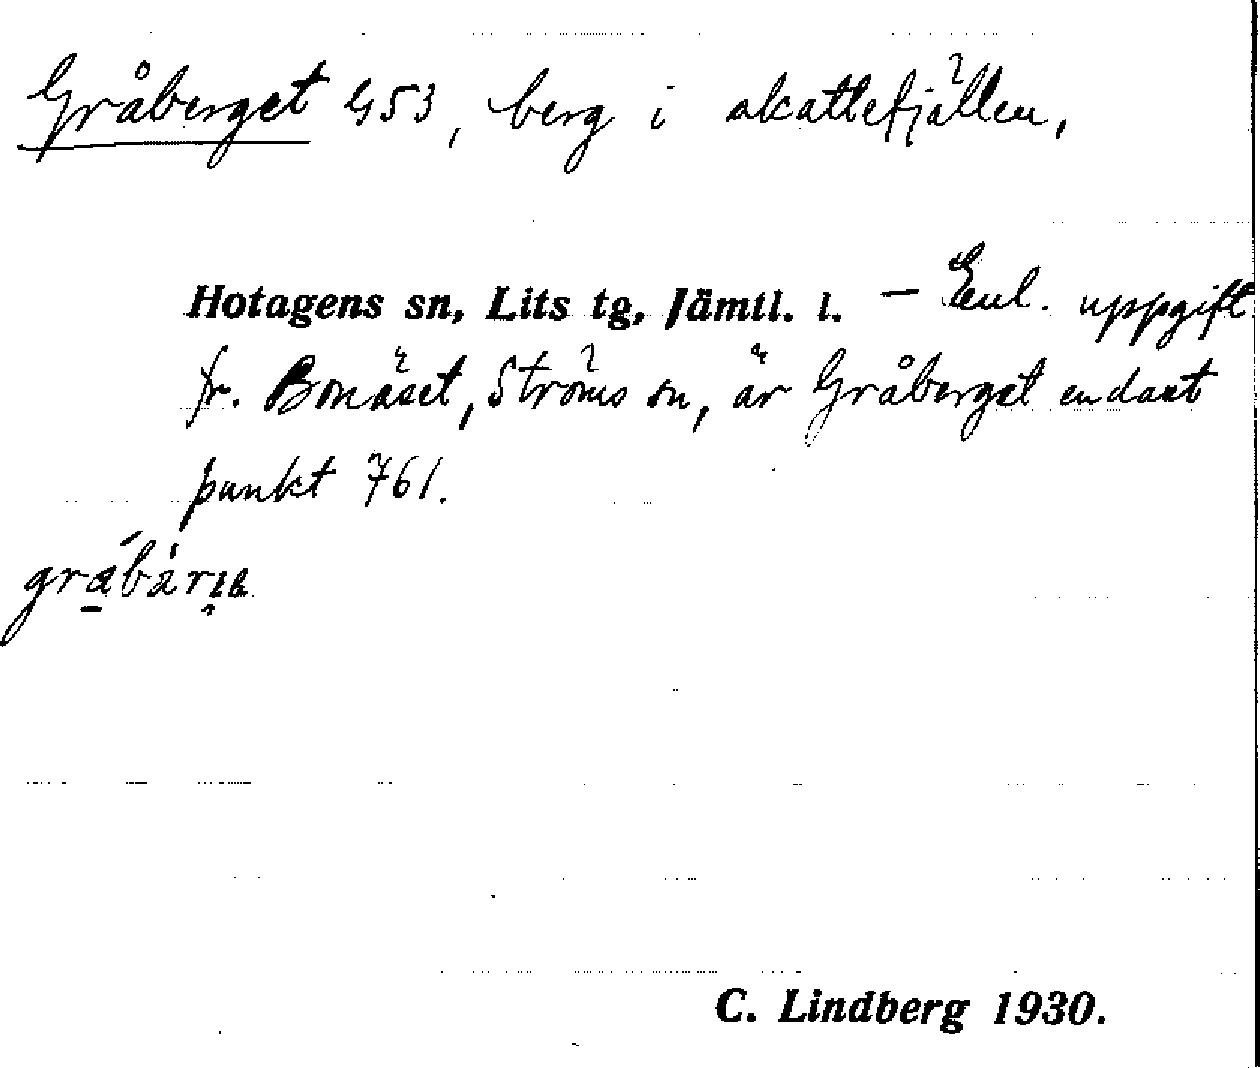 Gråberget G53, berg i skattefjällen,
Hotagens sn, Lits tg, Jämtl. l. – Enl. uppgift
fr. Bonäset, Ströms sn, är Gråberget endast
punkt 761.
C. Lindberg 1930.